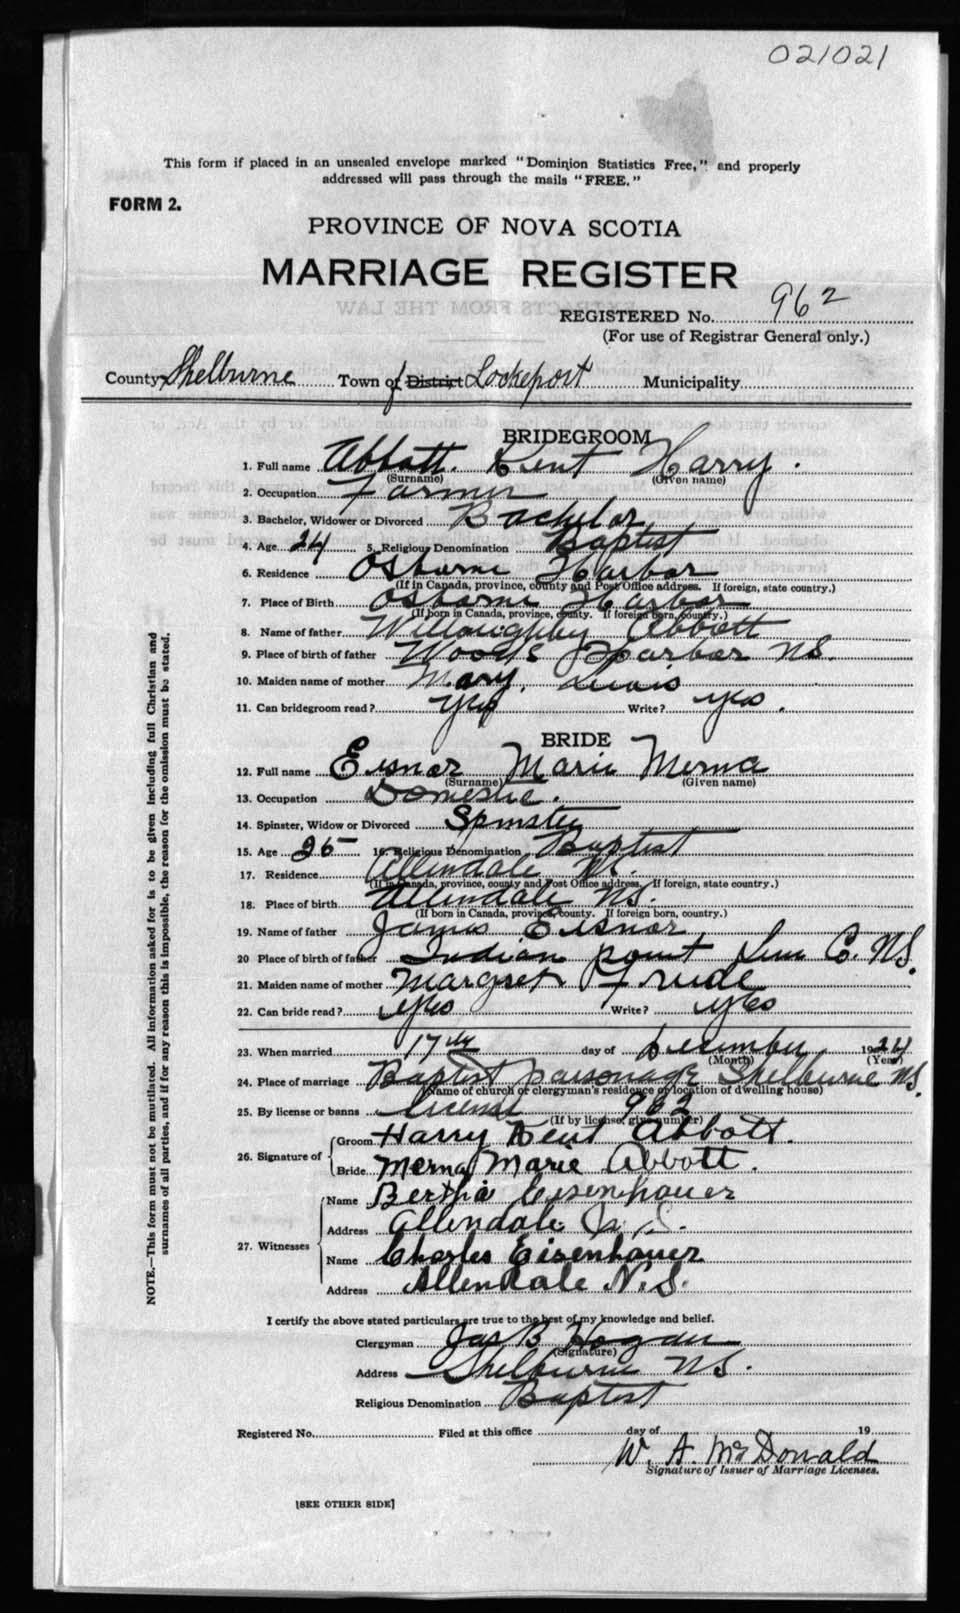 021021
This form if placed in an unsealed envelope marked "Dominion Statistics Free," and properly
addressed will pass through the mails "FREE."
FORM 2.
PROVINCE OF NOVA SCOTIA
MARRIAGE REGISTER
REGISTERED No. 962
(For use of Registrar General only.)
County Shelburne Town of District Lockeport Municipality
BRIDEGROOM
1. Full name Abbott. Kent Harry.
(Surname) (Given name)
2. Occupation Farmer
3. Bachelor, Widower or Divorced Bachelor
4. Age 24 5. Religious Denomination Baptist
6. Residence Osborne Harbor
(If in Canada, province, county and Post Office address. If foreign, state country.)
7. Place of Birth Osborne Harbor
(If born in Canada, province, county. If foreign born, country.)
8. Name of father Willoughby Abbott
9. Place of birth of father Woods Harbor N.S.
10. Maiden name of mother Mary, Lewis
11. Can bridegroom read? Yes Write? yes.
BRIDE
12. Full name Eisnor Marie Merna
(Surname) (Given name)
13. Occupation Domestic.
14. Spinster, Widow or Divorced Spinster
15. Age 25 16. Religious Denomination Baptist
17. Residence Allendale N.S.
(If in Canada, province, county and Post Office address. If foreign, state country.)
18. Place of birth Allendale N.S.
(If born in Canada, province, county. If foreign born, country.)
19. Name of father James Eisnor
20 Place of birth of father Indian point Lun C. N.S.
21. Maiden name of mother Margret Frude
22. Can bride read? yes Write? yes
23. When married 17th day of December 1924
(Month) (Year)
24. Place of marriage Baptist parsonage Shelburne N.S.
(Name of church or clergyman's residence or location of dwelling house)
25. By license or banns License 962
(If by license, give number)
26. Signature of Groom Harry Kent Abbott.
Bride Merna Marie Abbott.
27. Witnesses Name Bertha Eisenhauer
Address Allendale N.S.
Name Charles Eisenhauer
Address Allendale N.S.
I certify the above stated particulars are true to the best of my knowledge and belief.
Clergyman Jas B Hogan
(Signature)
Address Shelburne N.S.
Religious Denomination Baptist
Registered No. Filed at this office day of 19
W. A. McDonald
Signature of Issuer of Marriage Licenses.
[SEE OTHER SIDE]
NOTE.—This form must not be mutilated. All information asked for is to be given including full Christian and
surnames of all parties, and if for any reason this is impossible, the reason for the omission must be stated.